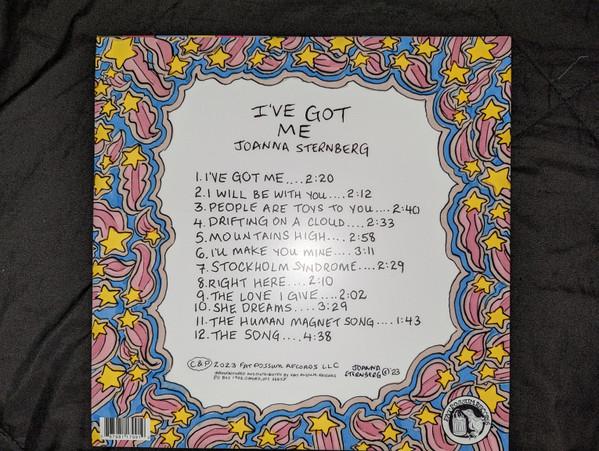 I'VE GOT
ME
JOANNA STERNBERG
1. I'VE GOT ME....2:20
2. I WILL BE WITH YOU....2:12
3. PEOPLE ARE TOYS TO YOU....2:40
4. DRIFTING ON A CLOUD....2:33
5. MOUNTAINS HIGH....2:58
6. I'LL MAKE YOU MINE....3:11
7. STOCKHOLM SYNDROME....2:29
8. RIGHT HERE....2:10
9. THE LOVE I GIVE....2:02
10. SHE DREAMS....3:29
11. THE HUMAN MAGNET SONG....1:43
12. THE SONG....4:38
C&P 2023 FAT POSSUM RECORDS LLC
MANUFACTURED AND DISTRIBUTED BY FAT POSSUM RECORDS
PO BOX 1923, OXFORD, MS 38655
JOANNA
STERNBERG © 23
FAT POSSUM RECORDS